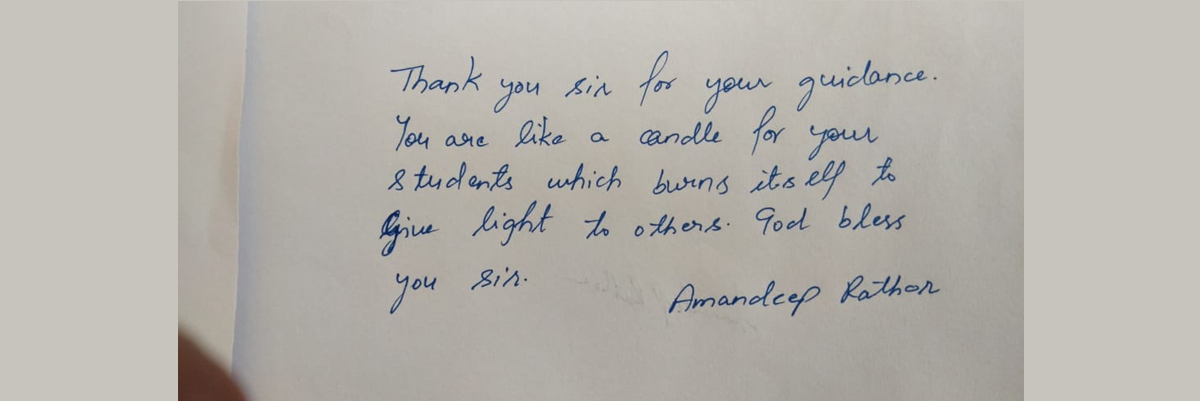 Thank you sir for your guidance.
You are like a candle for your
students which burns itself to
Give light to others. God bless
you sir.
Amandeep Rathor